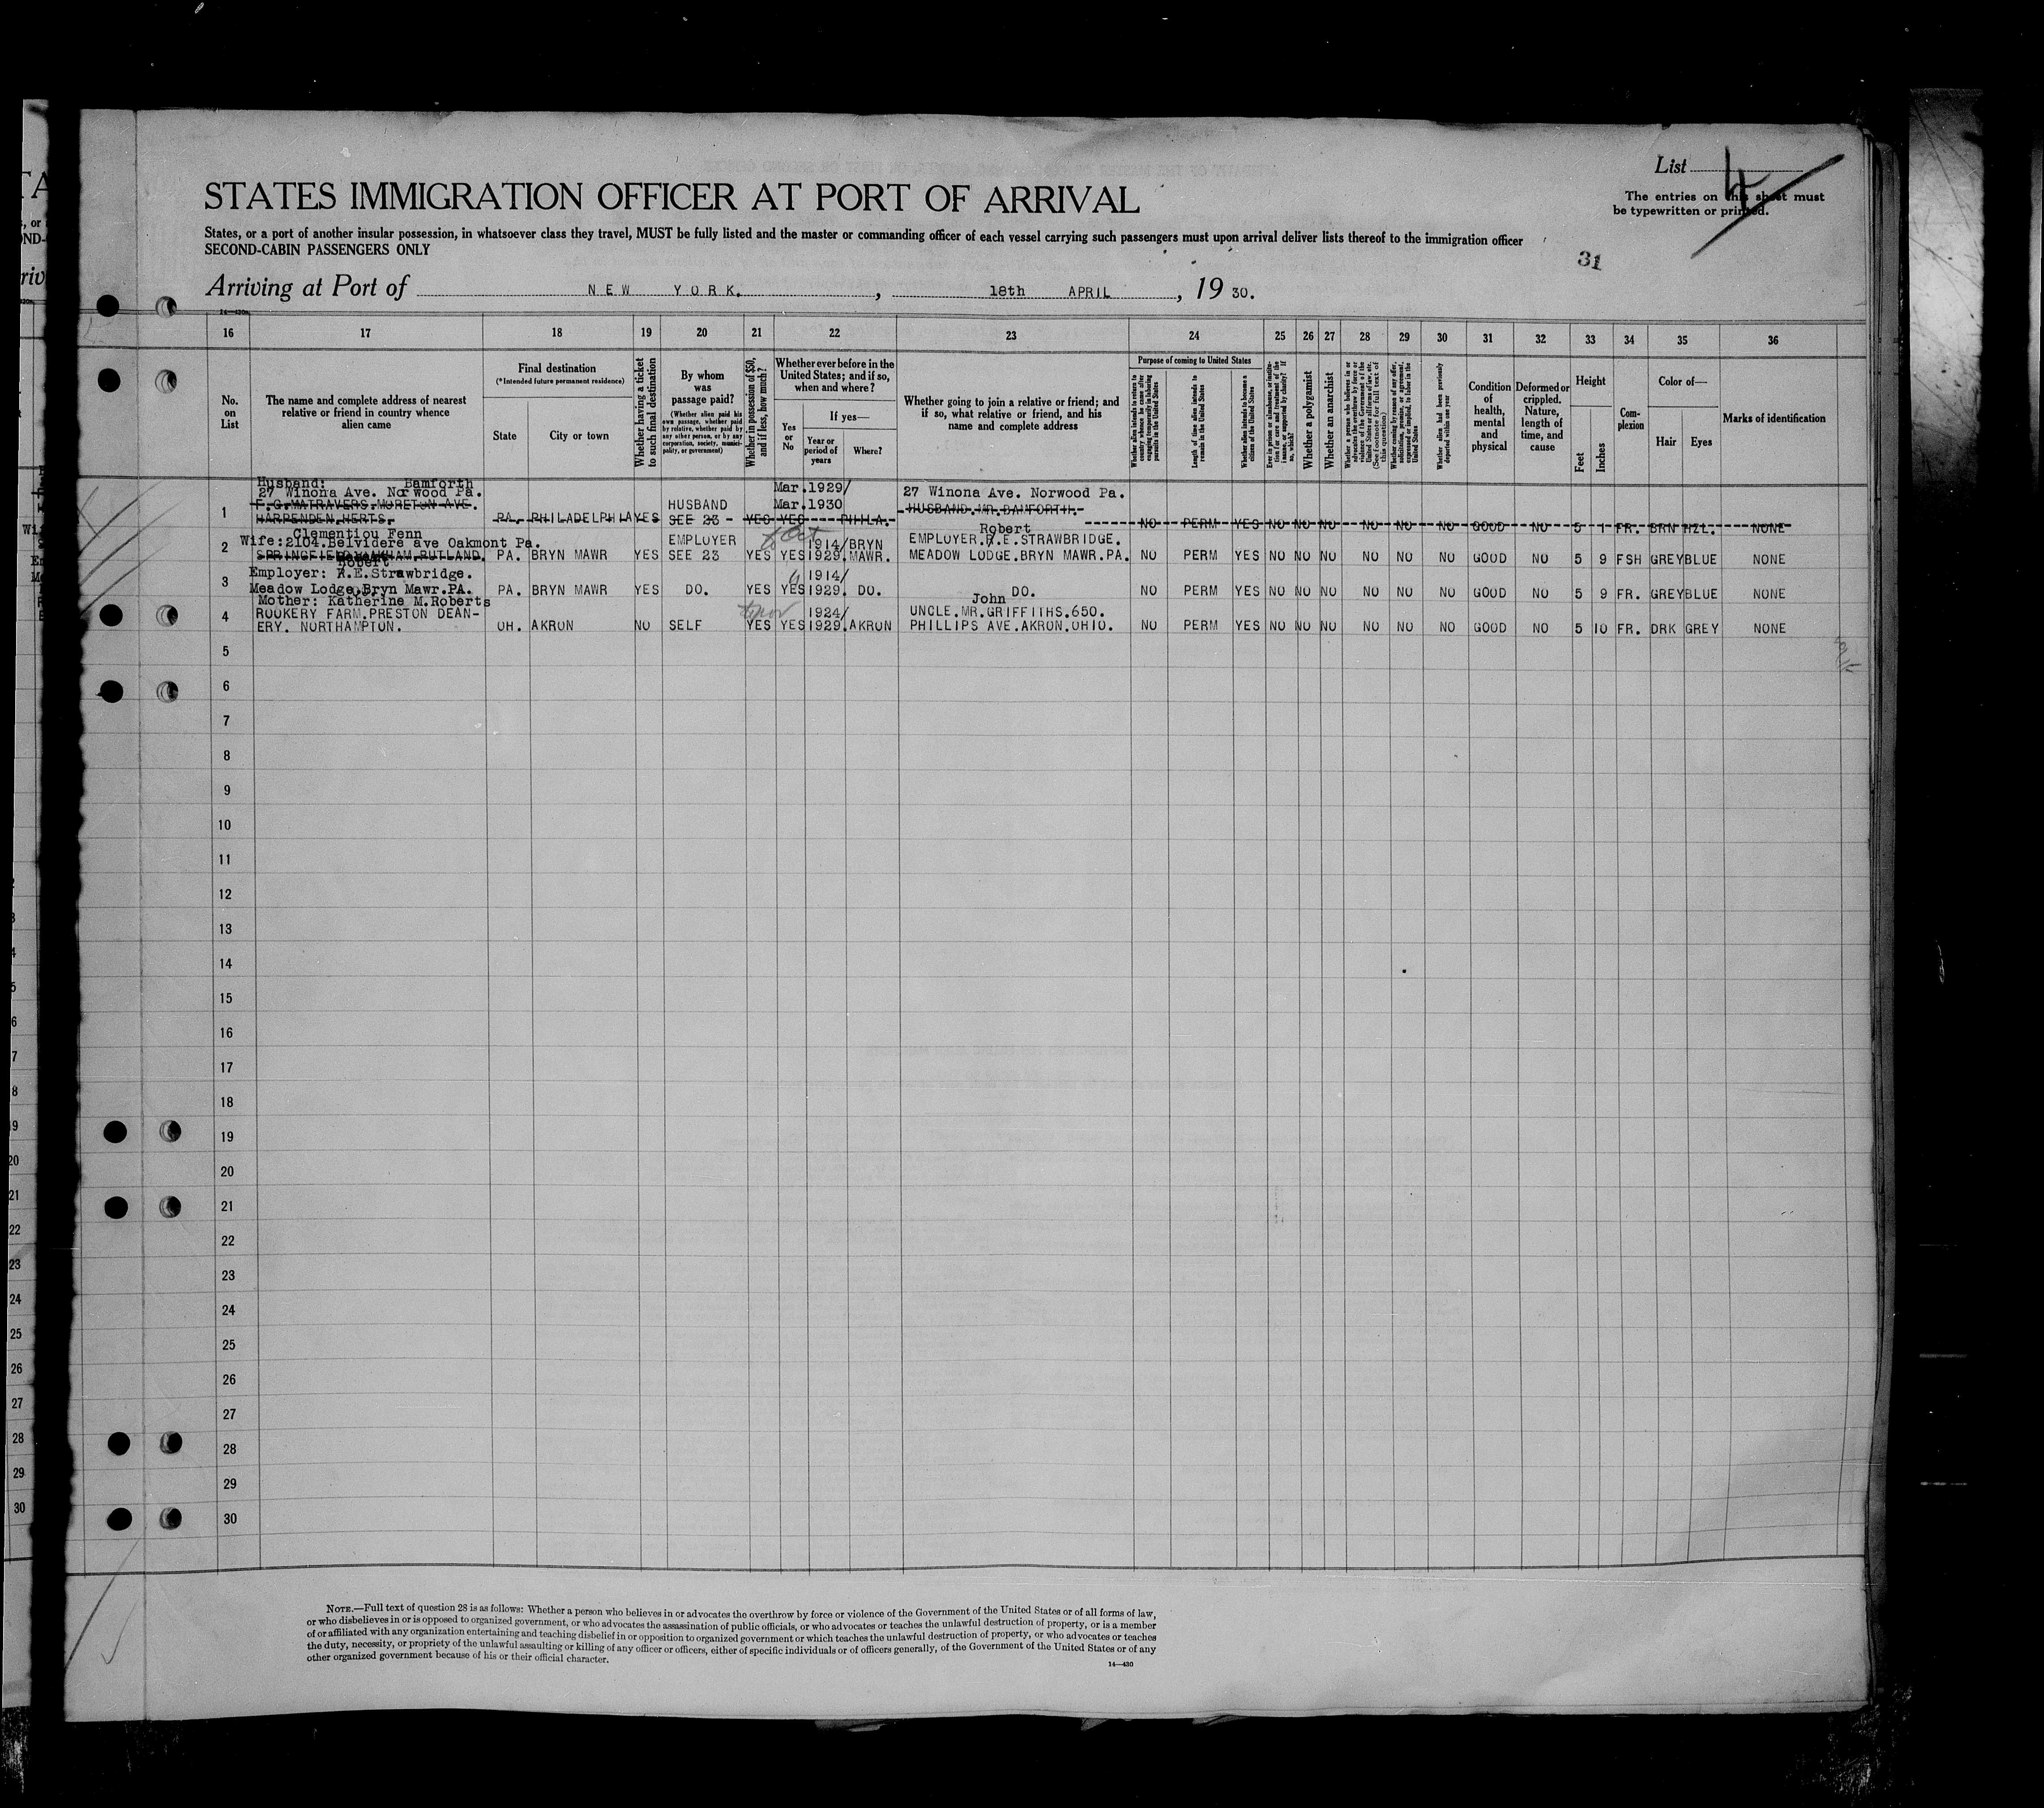 List 4
The entries on this sheet must
be typewritten or printed.
STATES IMMIGRATION OFFICER AT PORT OF ARRIVAL
States, or a port of another insular possession, in whatsoever class they travel, MUST be fully listed and the master or commanding officer of each vessel carrying such passengers must upon arrival deliver lists thereof to the immigration officer
SECOND-CABIN PASSENGERS ONLY
31
Arriving at Port of NEW YORK, 18th APRIL, 1930.
14—430a
16 17 18 19 20 21 22 23 24 25 26 27 28 29 30 31 32 33 34 35 36
No. on List
The name and complete address of nearest relative or friend in country whence alien came
Final destination
(*Intended future permanent residence)
State
City or town
Whether having a ticket to such final destination
By whom was passage paid?
(Whether alien paid his own passage, whether paid by relative, whether paid by any other person, or by any corporation, society, municipality, or government)
Whether in possession of $50, and if less, how much?
Whether ever before in the United States; and if so, when and where?
Yes or No
If yes—
Year or period of years
Where?
Whether going to join a relative or friend; and if so, what relative or friend, and his name and complete address
Purpose of coming to United States
Whether alien intends to return to country whence he came after engaging temporarily in laboring pursuits in the United States
Length of time alien intends to remain in the United States
Whether alien intends to become a citizen of the United States
Ever in prison or almshouse, or institution for care and treatment of the insane, or supported by charity? If so, which?
Whether a polygamist
Whether an anarchist
Whether a person who believes in or advocates the overthrow by force or violence of the Government of the United States or all forms of law, etc. (See footnote for full text of this question)
Whether coming by reason of any offer, solicitation, promise, or agreement, expressed or implied, to labor in the United States
Whether alien had been previously deported within one year
Condition of health, mental and physical
Deformed or crippled. Nature, length of time, and cause
Height
Feet
Inches
Complexion
Color of—
Hair
Eyes
Marks of identification
Husband: Bamforth
27 Winona Ave. Norwood Pa. Mar.1929/ 27 Winona Ave. Norwood Pa.
F.G.MATRAVERS.MORETON AVE. HUSBAND Mar.1930 HUSBAND.MR.BAMFORTH.
1 HARPENDEN.HERTS. PA. PHILADELPHIA YES SEE 23 YES YES PHILA. NO PERM YES NO NO NO NO NO NO GOOD NO 5 1 FR. BRN HZL. NONE
Clementiou Fenn Robert
Wife:2104.Belvidere ave Oakmont Pa. EMPLOYER 1914/ BRYN EMPLOYER.R.E.STRAWBRIDGE.
2 SPRINGFIELD.OAKHAM.RUTLAND. PA. BRYN MAWR YES SEE 23 YES YES 1929. MAWR. MEADOW LODGE.BRYN MAWR.PA. NO PERM YES NO NO NO NO NO NO GOOD NO 5 9 FSH GREY BLUE NONE
Robert
Employer: R.E.Strawbridge. 1914/
3 Meadow Lodge,Bryn Mawr.PA. PA. BRYN MAWR YES DO. YES YES 1929. DO. DO. NO PERM YES NO NO NO NO NO NO GOOD NO 5 9 FR. GREY BLUE NONE
Mother: Katherine M.Roberts John
ROOKERY FARM.PRESTON DEAN- 1924/ UNCLE.MR.GRIFFITHS.650.
4 ERY. NORTHAMPTON. OH. AKRON NO SELF YES YES 1929. AKRON PHILLIPS AVE.AKRON.OHIO. NO PERM YES NO NO NO NO NO NO GOOD NO 5 10 FR. DRK GREY NONE
5
6
7
8
9
10
11
12
13
14
15
16
17
18
19
20
21
22
23
24
25
26
27
28
29
30
NOTE.—Full text of question 28 is as follows: Whether a person who believes in or advocates the overthrow by force or violence of the Government of the United States or of all forms of law,
or who disbelieves in or is opposed to organized government, or who advocates the assassination of public officials, or who advocates or teaches the unlawful destruction of property, or is a member
of or affiliated with any organization entertaining and teaching disbelief in or opposition to organized government or which teaches the unlawful destruction of property, or who advocates or teaches
the duty, necessity, or propriety of the unlawful assaulting or killing of any officer or officers, either of specific individuals or of officers generally, of the Government of the United States or of any
other organized government because of his or their official character.
14—430